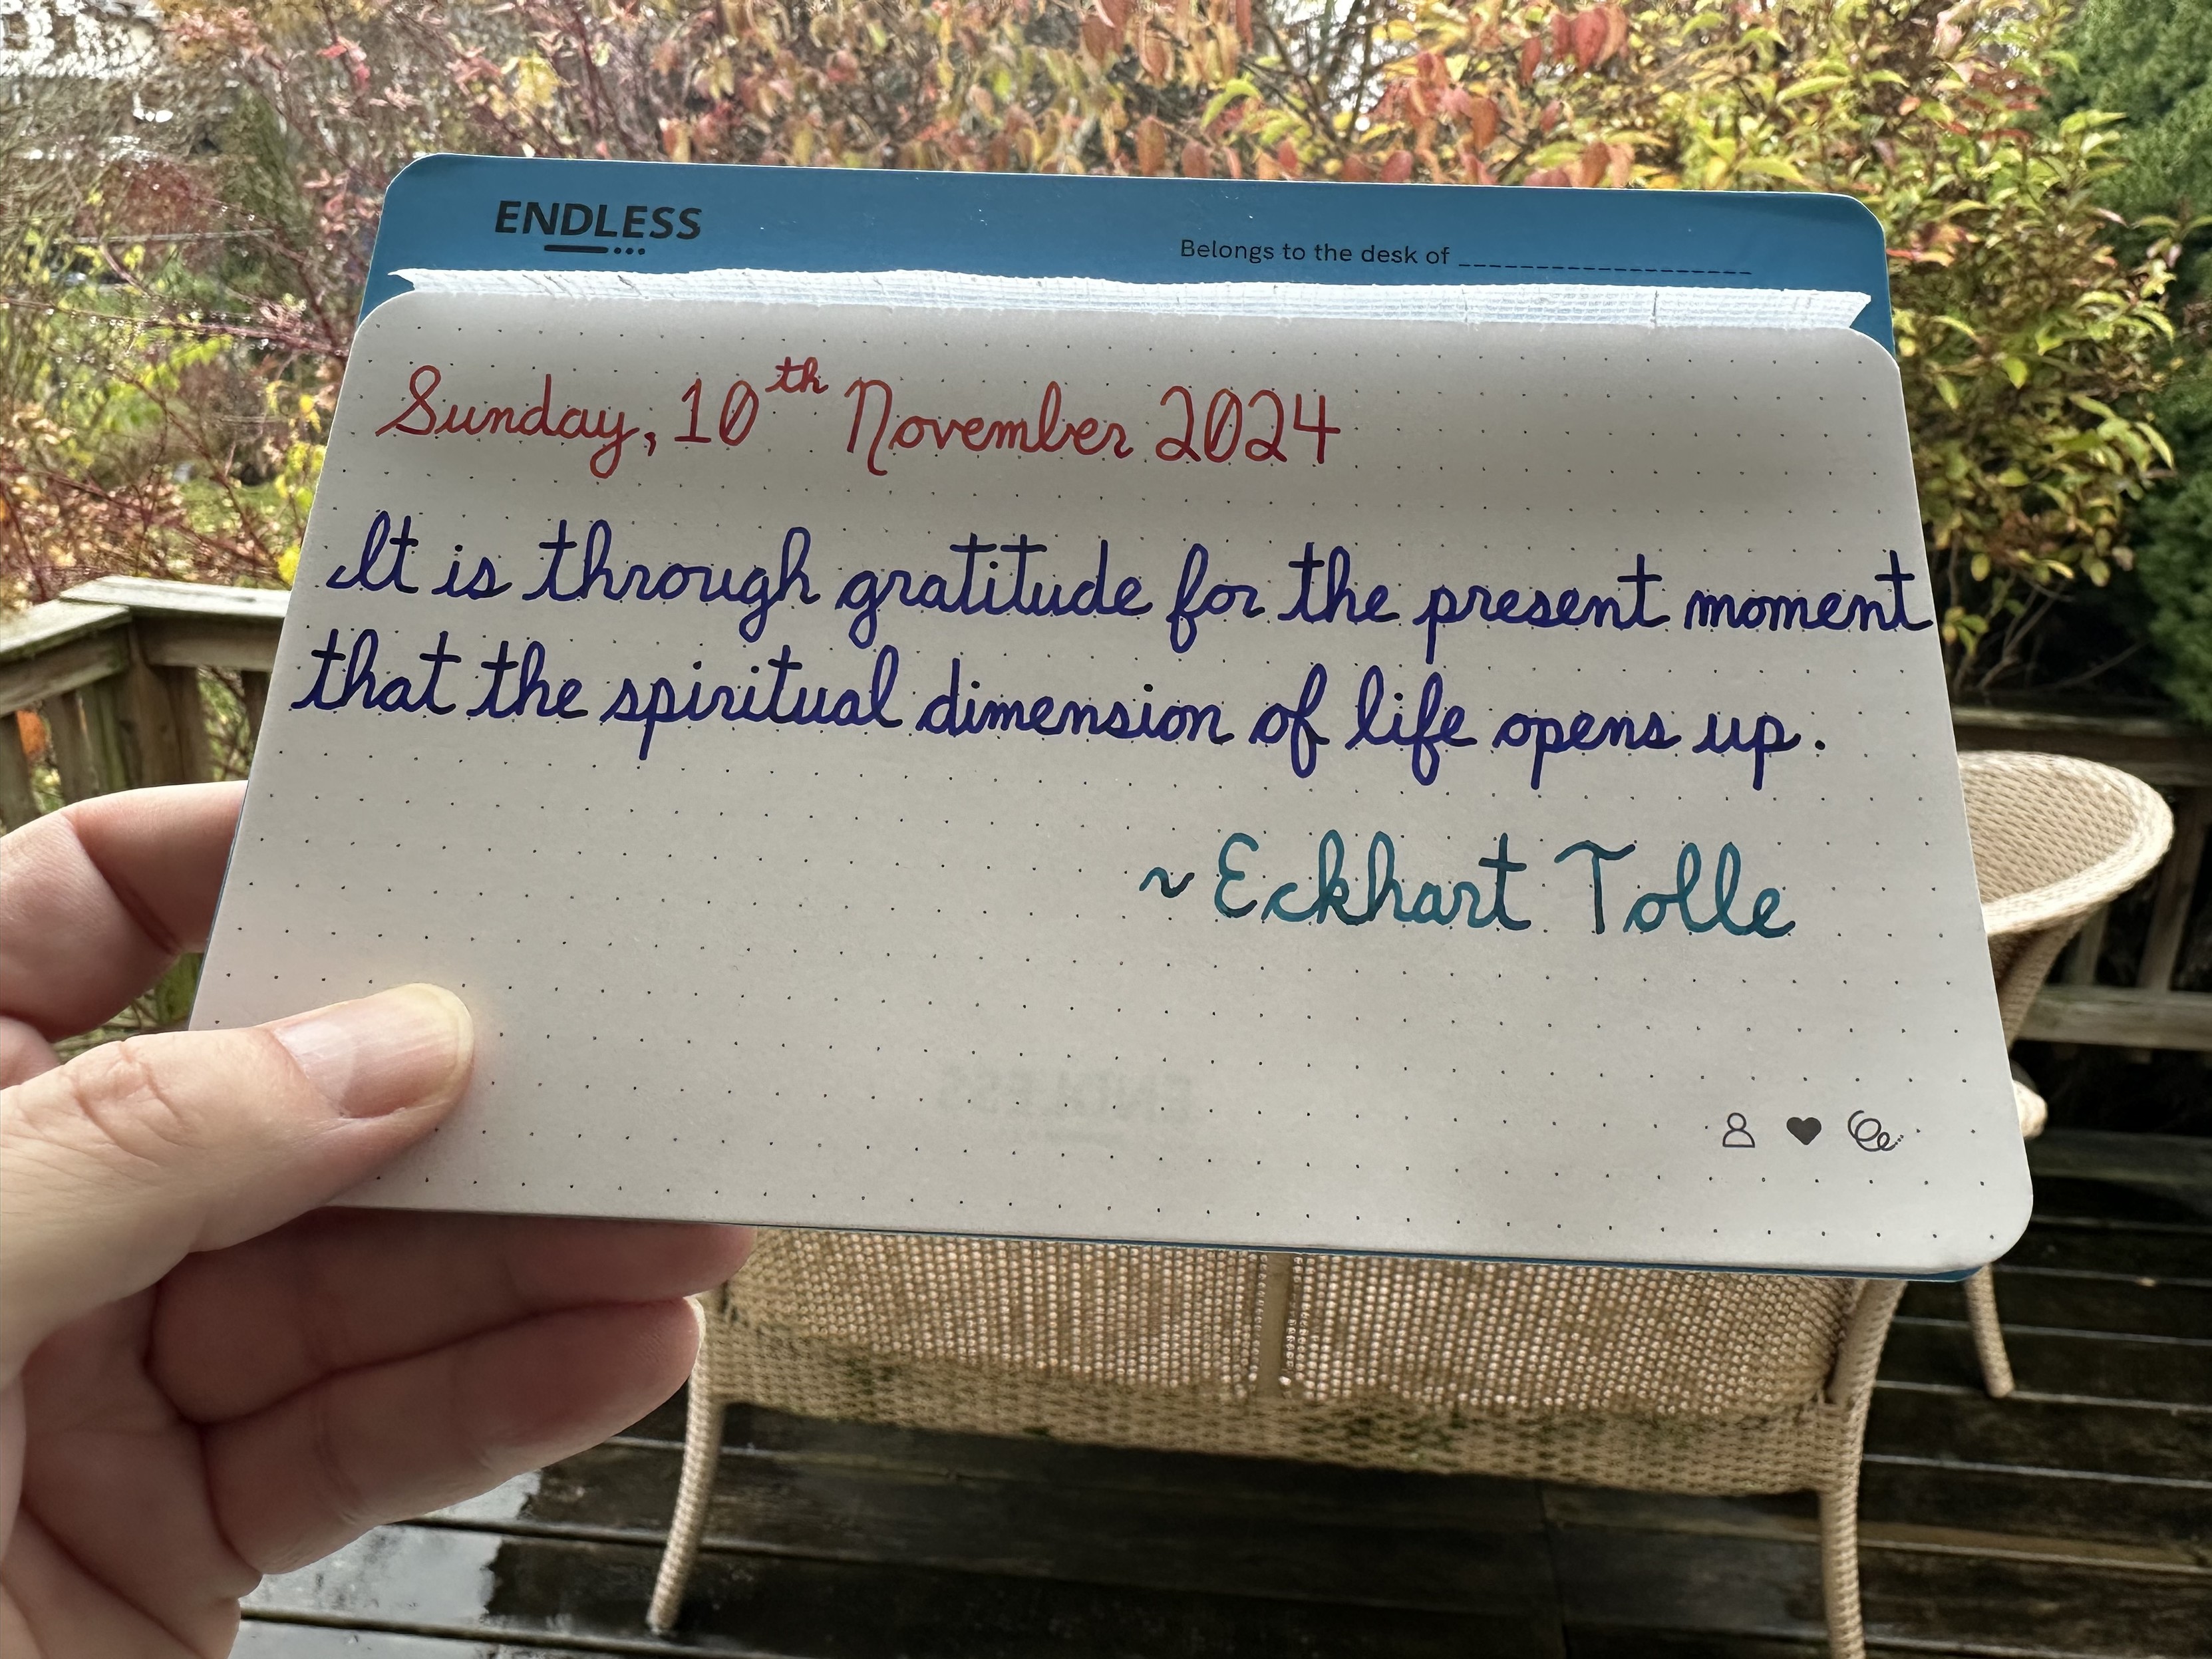 ENDLESS
Belongs to the desk of ____________________
Sunday, 10th November 2024
It is through gratitude for the present moment
that the spiritual dimension of life opens up.
~ Eckhart Tolle
ENDLESS